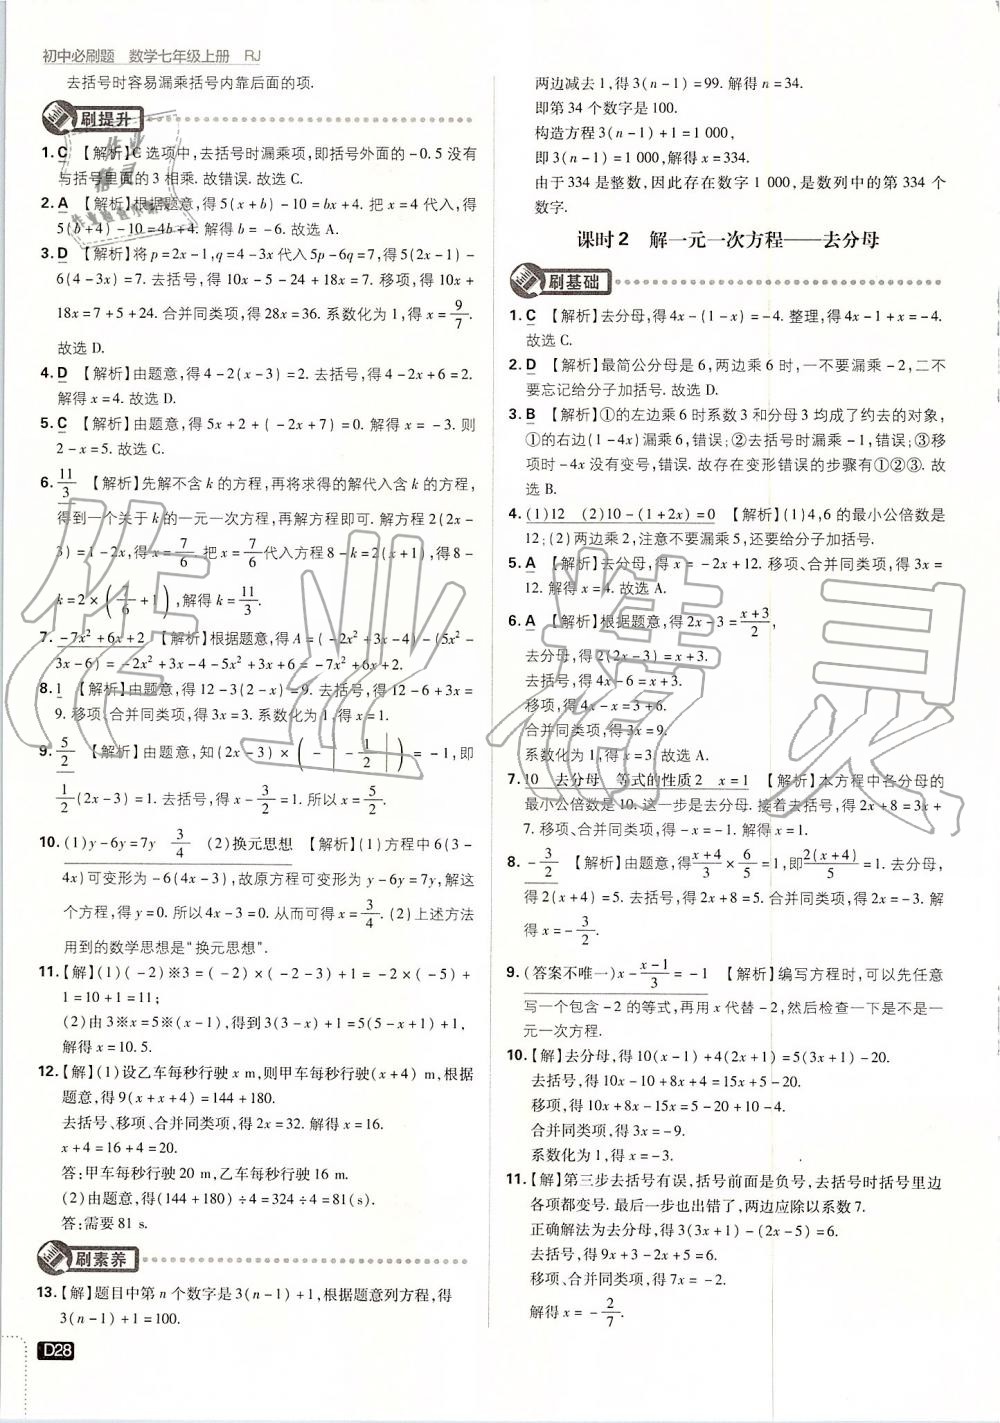 初中必刷题 数学七年级上册 RJ
去括号时容易漏乘括号内靠后面的项.
刷提升
1. C 【解析】C选项中,去括号时漏乘项,即括号外面的-0.5没有
与括号里面的3相乘.故错误.故选C.
2. A 【解析】根据题意,得5(x+b)-10=bx+4.把x=4代入,得
5(b+4)-10=4b+4,解得b=-6.故选A.
3. D 【解析】将p=2x-1,q=4-3x代入5p-6q=7,得5(2x-1)-
6(4-3x)=7.去括号,得10x-5-24+18x=7.移项,得10x+
18x=7+5+24.合并同类项,得28x=36.系数化为1,得x=9/7.
故选D.
4. D 【解析】由题意,得4-2(x-3)=2.去括号,得4-2x+6=2.
解得x=4.故选D.
5. C 【解析】由题意,得5x+2+(-2x+7)=0.解得x=-3.则
2-x=5.故选C.
6. 11/3 【解析】先解不含k的方程,再将求得的解代入含k的方程,
得到一个关于k的一元一次方程,再解方程即可.解方程2(2x-
3)=1-2x,得x=7/6.把x=7/6代入方程8-k=2(x+1),得8-
k=2×(7/6+1),解得k=11/3.
7. -7x²+6x+2 【解析】根据题意,得A=(-2x²+3x-4)-(5x²-
3x-6)=-2x²+3x-4-5x²+3x+6=-7x²+6x+2.
8. 1 【解析】由题意,得12-3(2-x)=9.去括号,得12-6+3x=
9.移项、合并同类项,得3x=3.系数化为1,得x=1.
9. 5/2 【解析】由题意,知(2x-3)×(-|-1/2|)=-1,即
1/2(2x-3)=1.去括号,得x-3/2=1.所以x=5/2.
10. (1)y-6y=7y 3/4 (2)换元思想 【解析】(1)方程中6(3-
4x)可变形为-6(4x-3),故原方程可变形为y-6y=7y,解这
个方程,得y=0.所以4x-3=0.从而可得x=3/4.(2)上述方法
用到的数学思想是“换元思想”.
11. 【解】(1)(-2)※3=(-2)×(-2-3)+1=-2×(-5)+
1=10+1=11;
(2)由3※x=5※(x-1),得到3(3-x)+1=5(5-x+1)+1,
解得x=10.5.
12. 【解】(1)设乙车每秒行驶x m,则甲车每秒行驶(x+4) m,根据
题意,得9(x+x+4)=144+180.
去括号、移项、合并同类项,得2x=32.解得x=16.
x+4=16+4=20.
答:甲车每秒行驶20 m,乙车每秒行驶16 m.
(2)由题意,得(144+180)÷4=324÷4=81(s).
答:需要81 s.
刷素养
13. 【解】题目中第n个数字是3(n-1)+1,根据题意列方程,得
3(n-1)+1=100.
D28
两边减去1,得3(n-1)=99.解得n=34.
即第34个数字是100.
构造方程3(n-1)+1=1 000,
即3(x-1)+1=1 000,解得x=334.
由于334是整数,因此存在数字1 000,是数列中的第334个
数字.
课时2 解一元一次方程——去分母
刷基础
1. C 【解析】去分母,得4x-(1-x)=-4.整理,得4x-1+x=-4.
故选C.
2. D 【解析】最简公分母是6,两边乘6时,一不要漏乘-2,二不
要忘记给分子加括号.故选D.
3. B 【解析】①的左边乘6时系数3和分母3均成了约去的对象,
①的右边(1-4x)漏乘6,错误;②去括号时漏乘-1,错误;③移
项时-4x没有变号,错误.故存在变形错误的步骤有①②③.故
选B.
4. (1)12 (2)10-(1+2x)=0 【解析】(1)4,6的最小公倍数是
12;(2)两边乘2,注意不要漏乘5,还要给分子加括号.
5. A 【解析】去分母,得x=-2x+12.移项、合并同类项,得3x=
12.解得x=4.故选A.
6. A 【解析】根据题意,得2x-3=(x+3)/2,
去分母,得2(2x-3)=x+3.
去括号,得4x-6=x+3.
移项,得4x-x=3+6.
合并同类项,得3x=9.
系数化为1,得x=3.故选A.
7. 10 去分母 等式的性质2 x=1 【解析】本方程中各分母的
最小公倍数是10.这一步是去分母.接着去括号,得2x+8=3x+
7.移项、合并同类项,得-x=-1.解得x=1.
8. -3/2 【解析】由题意,得(x+4)/3×6/5=1,即2(x+4)/5=1.去分母,
得2(x+4)=5.去括号,得2x+8=5.移项、合并同类项,得2x=-3.解
得x=-3/2.
9. (答案不唯一)x-(x-1)/3=-1 【解析】编写方程时,可以先任意
写一个包含-2的等式,再用x代替-2,然后检查一下是不是一
元一次方程.
10. 【解】去分母,得10(x-1)+4(2x+1)=5(3x+1)-20.
去括号,得10x-10+8x+4=15x+5-20.
移项,得10x+8x-15x=5-20+10-4.
合并同类项,得3x=-9.
系数化为1,得x=-3.
11. 【解】第三步去括号有误,括号前面是负号,去括号时括号里边
各项都变号.最后一步也出错了,两边应除以系数7.
正确解法为去分母,得3(3x+1)-2(x-2)=6.
去括号,得9x+3-2x+4=6.
移项、合并同类项,得7x=-2.
解得x=-2/7.
作业精灵